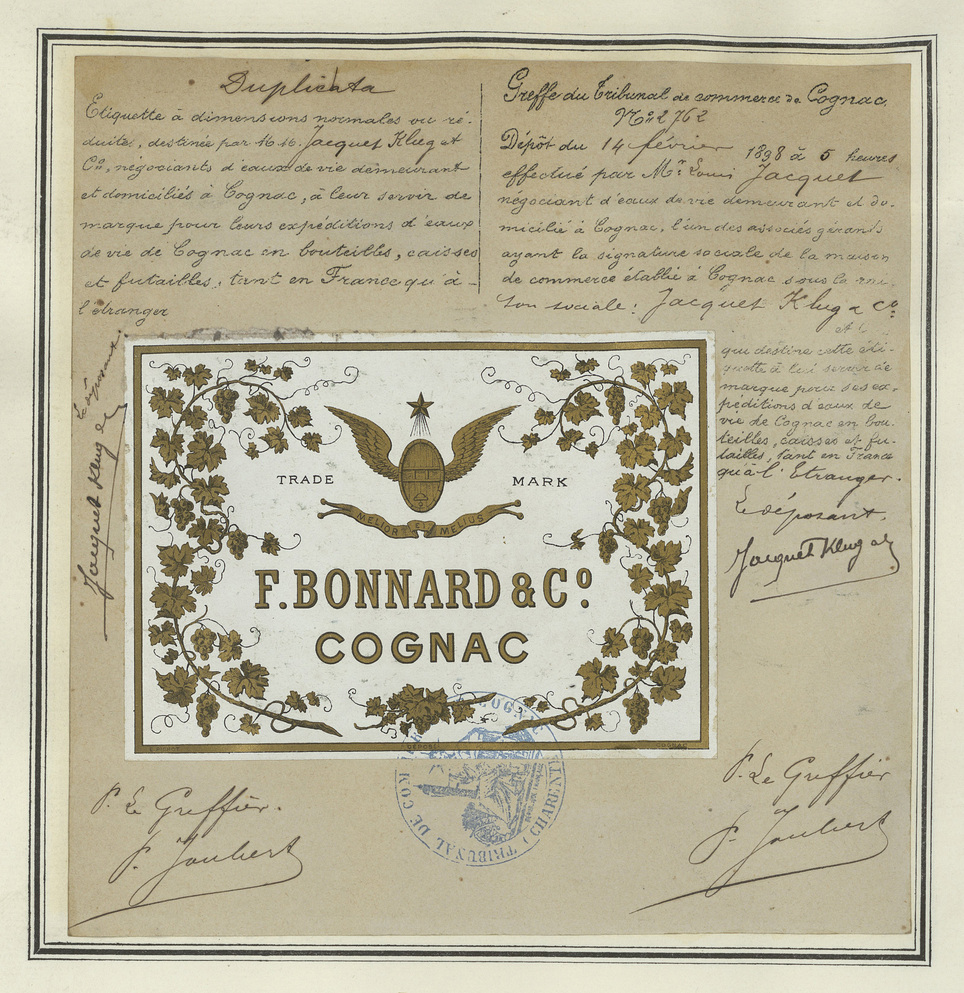 Duplicata
Etiquette à dimensions normales ou ré-
duites, destinée par M.M. Jacquet Klug et
Cie, négociants d'eaux de vie demeurant
et domiciliés à Cognac, à leur servir de
marque pour leurs expéditions d'eaux
de vie de Cognac en bouteilles, caisses
et futailles, tant en France qu'à-
l'étranger
Le déposant
Jacquet Klug &
Greffe du Tribunal de commerce de Cognac.
No 2762
Dépôt du 14 février 1898 à 5 heures
effectué par Mr Louis Jacquet
négociant d'eaux de vie demeurant et do-
micilié à Cognac, l'un des associés gérants
ayant la signature sociale de la maison
de commerce établie à Cognac sous la rai-
son sociale: Jacquet Klug & Co
qui destine cette éti-
quette à lui servir de
marque pour ses ex-
péditions d'eaux de
vie de Cognac en bou-
teilles, caisses et fu-
tailles, tant en France
qu'à l'Etranger.
Le déposant.
Jacquet Klug &
TRADE MARK
MELIOR ET MELIUS
F. BONNARD & Co
COGNAC
DÉPOSÉ
COGNAC
TRIBUNAL DE COMMERCE DE COGNAC (CHARENTE)
P. Le Greffier.
P. Joubert
P. Le Greffier
P. Joubert